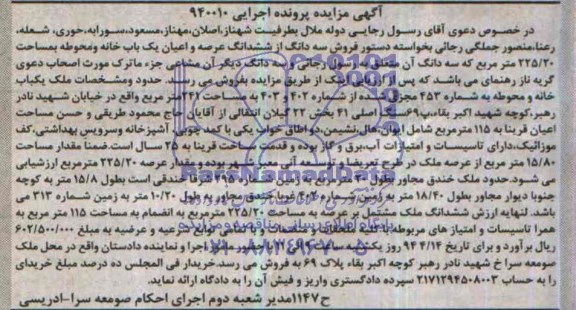 آگهی مزایده پرونده اجرایی ۹۴۰۰۱۰
در خصوص دعوی آقای رسول رجایی دوله ملال بطرفیت شهناز،اصلان،مهناز،مسعود،سورابه،حوری، شعله،
رعنا،منصور جملگی رجائی بخواسته دستور فروش سه دانگ از ششدانگ عرصه و اعیان یک باب خانه ومحوطه بمساحت
۲۲۵/۲۰ متر مربع که سه دانگ آن متعلق رجائی سه دانگ دیگر آن مشاعی جزء ماترک مورث اصحاب دعوی
گریه ناز رهنمای می باشد که پس از ارزیابی ملک از طریق مزایده بفروش می رسد. حدود ومشخصات ملک یکباب
خانه و محوطه به شماره ۴۵۳ مجزی شده از شماره ۴۰۲ و ۴۰۳ به مساحت ۲۴۱ متر مربع واقع در خیابان شهید نادر
رهبر،کوچه شهید اکبر بقاء،پ۶۹ سنگ اصلی ۴۱ بخش ۲۲ گیلان انتقالی از آقایان حاج محمود طریقی و حسن مساحت
اعیان قریبا به ۱۱۵ مترمربع شامل ایوان،هال،نشیمن،دو اطاق خواب یکی با کمد چوبی، آشپزخانه وسرویس بهداشتی،کف
موزائیک،دارای تاسیسات و امتیازات آب،برق و گاز بوده و قدمت ساخت قریبا به ۲۵ سال است.ضمنا مقدار مساحت
۱۵/۸۰ متر مربع از عرصه ملک در طرح تعریضا و توسعه آتی معبر شهر بوده و مقدار عرصه ۲۲۵/۲۰ مترمربع ارزشیابی
می شود.حدود ملک خندق مجاور بطول ۲۰ متر به زمین شماره ۳۹۵ شرقا خندقی است بطول ۱۵/۸ متر به کوچه
جنوبا دیوار مجاور بطول ۱۸/۴۰ متر به زمین شماره ۴۰۴ غربا خندق مجاور به طول ۱۰/۲۰ متر به زمین شماره ۳۱۳ می
باشد. لنهایه ارزش ششدانگ ملک مشتمل بر عرصه به مساحت ۲۲۵/۲۰ مترمربع به انضمام به مساحت ۱۱۵ متر مربع به
همرا تاسیسات و امتیاز های مربوطه با کلیه متعلقات و مشخصات و تمامی توابع شرعیه و عرضیه به مبلغ ۶۰۲/۵۰۰/۰۰۰
ریال برآورد و برای تاریخ ۹۴/۴/۱۴ روز یکشنبه ساعت با حضور مامور اجرا و نماینده دادستان واقع در محل ملک
صومعه سرا خ شهید نادر رهبر کوچه اکبر بقاء پلاک ۶۹ به فروش می رسد.خریدار فی المجلس ده درصد مبلغ خریدای
را به حساب ۲۱۷۱۲۹۴۵۰۸۰۰۳ سپرده دادگستری واریز و فیش آن را به دادگاه ارائه نماید.
ح۱۱۴۷مدیر شعبه دوم اجرای احکام صومعه سرا-ادریسی